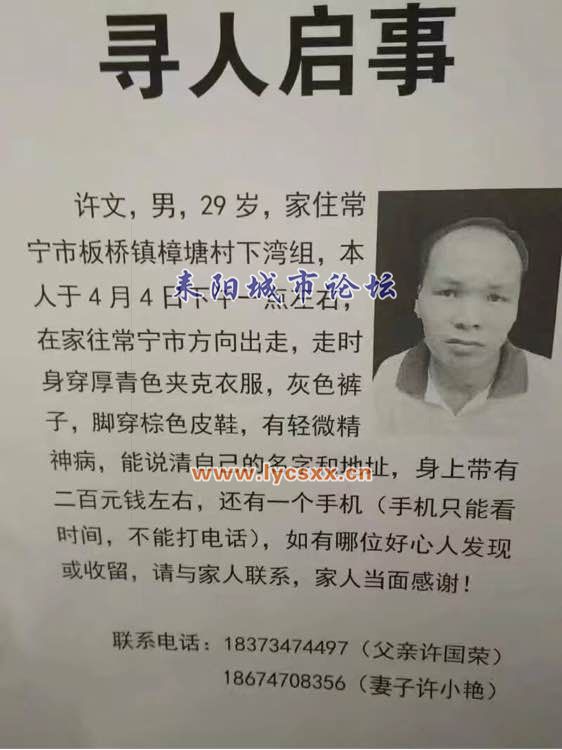 寻人启事
许文，男，29岁，家住常
宁市板桥镇樟塘村下湾组，本
人于4月4日下午一点左右，
耒阳城市论坛
在家往常宁市方向出走，走时
身穿厚青色夹克衣服，灰色裤
子，脚穿棕色皮鞋，有轻微精
神病，能说清自己的名字和地址，身上带有
www.lycsxx.cn
二百元钱左右，还有一个手机（手机只能看
时间，不能打电话），如有哪位好心人发现
或收留，请与家人联系，家人当面感谢！
联系电话：18373474497（父亲许国荣）
18674708356（妻子许小艳）